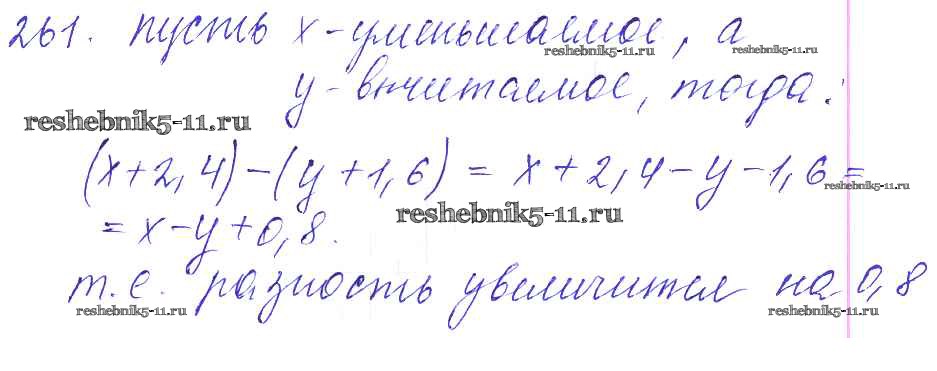 261. пусть x - уменьшаемое, а
reshebnik5-11.ru reshebnik5-11.ru
y - вычитаемое, тогда:
reshebnik5-11.ru
(x+2,4)-(y+1,6) = x+2,4-y-1,6=
reshebnik5-11.ru
reshebnik5-11.ru
=x-y+0,8.
т.е. разность увеличится на 0,8
reshebnik5-11.ru reshebnik5-11.ru